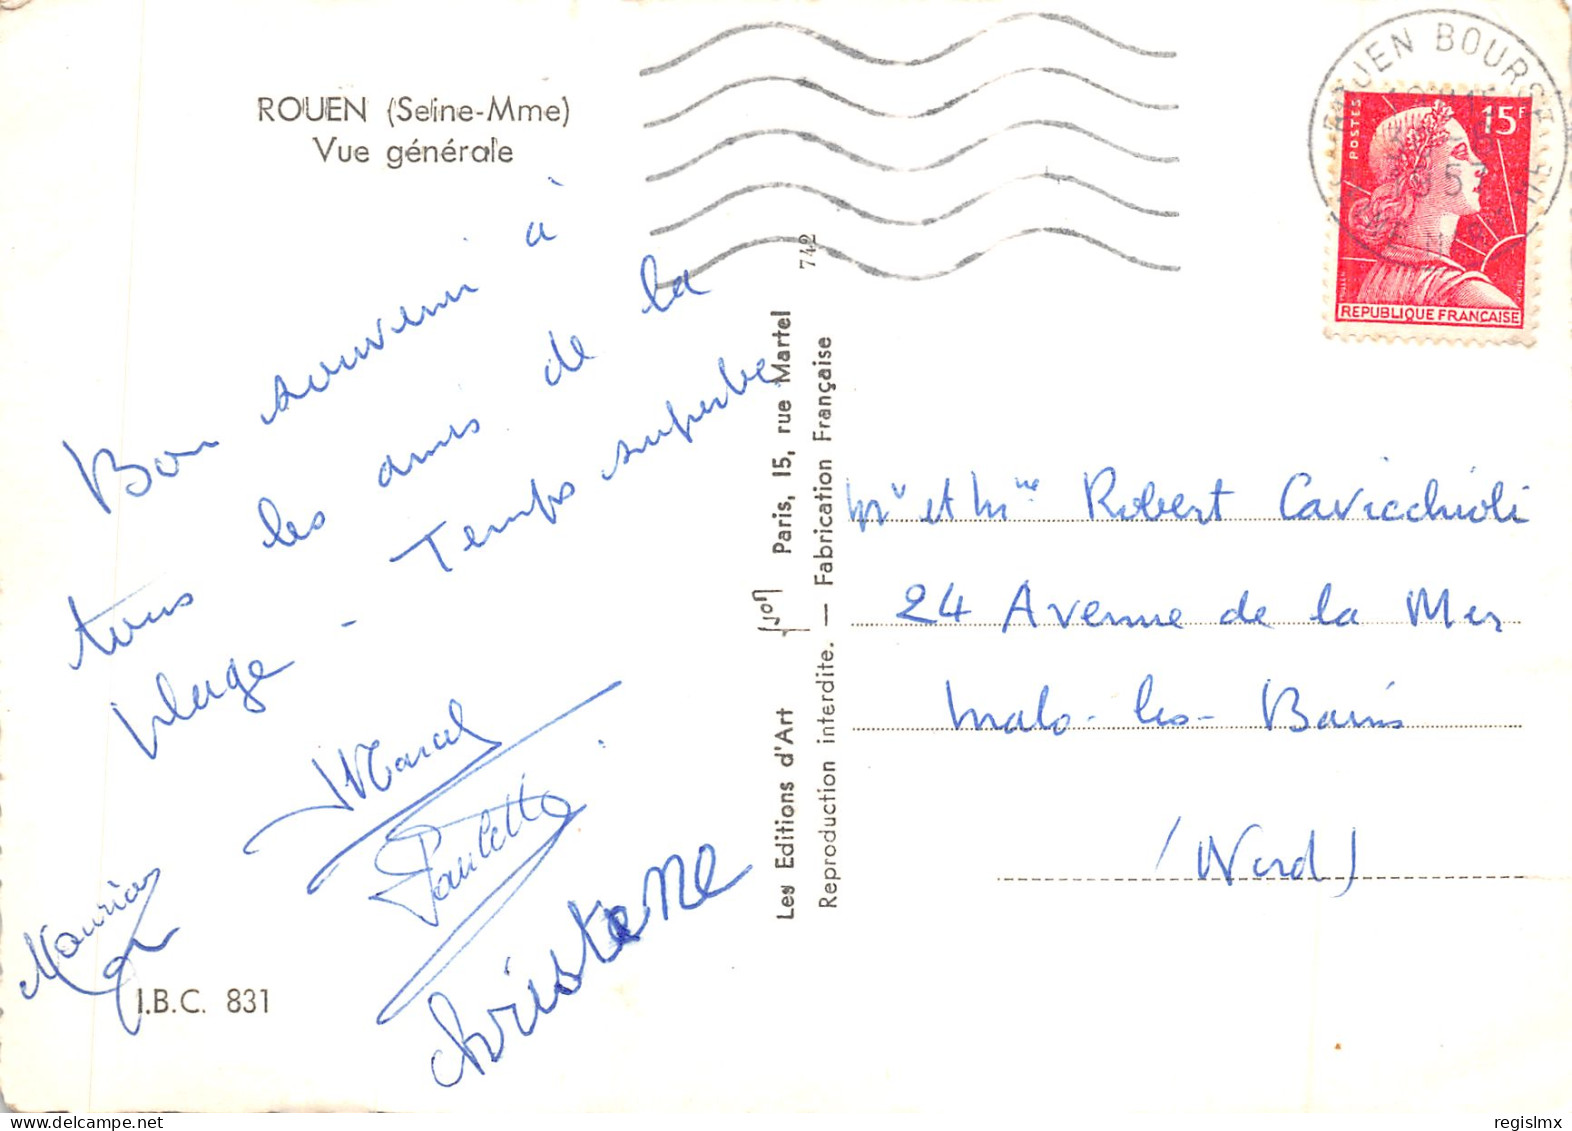 ROUEN (Seine-Mme)
Vue générale
Bon souvenir à
tous les amis de la
plage - Temps superbe
Marcel
Paulette
Christiane
I.B.C. 831
Les Editions d'Art Yvon Paris, 15, rue Martel
Reproduction interdite. — Fabrication Française
742
ROUEN BOURSE
POSTES
15F
REPUBLIQUE FRANÇAISE
Mr et Mme Robert Cavicchioli
24 Avenue de la Mer
Malo-les-Bains
(Nord)
delcampe.net
regislmx